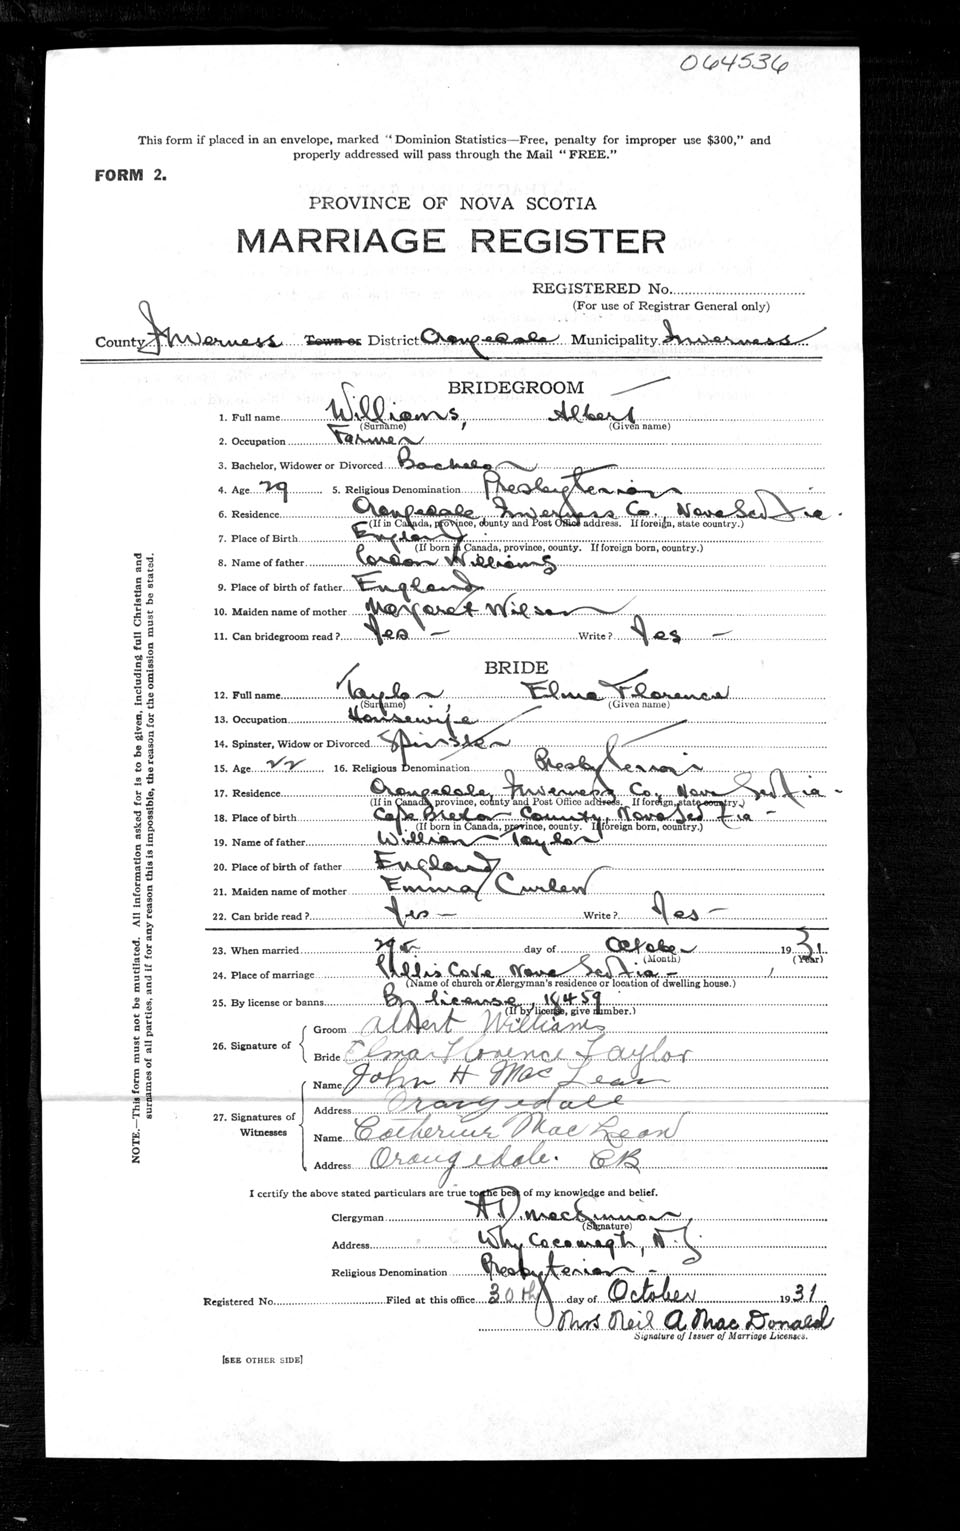 064536
This form if placed in an envelope, marked "Dominion Statistics—Free, penalty for improper use $300," and
properly addressed will pass through the Mail "FREE."
FORM 2.
PROVINCE OF NOVA SCOTIA
MARRIAGE REGISTER
REGISTERED No.
(For use of Registrar General only)
County Inverness Town or District Orangedale Municipality Inverness
BRIDEGROOM
1. Full name Williams, Albert
(Surname) (Given name)
2. Occupation Farmer
3. Bachelor, Widower or Divorced Bachelor
4. Age 29 5. Religious Denomination Presbyterian
6. Residence Orangedale, Inverness Co., Nova Scotia.
(If in Canada, province, county and Post Office address. If foreign, state country.)
7. Place of Birth England
(If born in Canada, province, county. If foreign born, country.)
8. Name of father Gordon Williams
9. Place of birth of father England
10. Maiden name of mother Margaret Wilson
11. Can bridegroom read? Yes — Write? Yes —
BRIDE
12. Full name Taylor, Elma Florence
(Surname) (Given name)
13. Occupation Housewife
14. Spinster, Widow or Divorced Spinster
15. Age 22 16. Religious Denomination Presbyterian
17. Residence Orangedale, Inverness Co., Nova Scotia —
(If in Canada, province, county and Post Office address. If foreign, state country.)
18. Place of birth Cape Breton County, Nova Scotia —
(If born in Canada, province, county. If foreign born, country.)
19. Name of father William Taylor
20. Place of birth of father England
21. Maiden name of mother Emma Curlew
22. Can bride read? Yes — Write? Yes —
23. When married day of October 1931
(Month) (Year)
24. Place of marriage Cove Nova Scotia —
(Name of church or clergyman's residence or location of dwelling house.)
25. By license or banns By license, 18459
(If by license, give number.)
26. Signature of
Groom Albert Williams
Bride Elma Florence Taylor
27. Signatures of Witnesses
Name John H MacLean
Address Orangedale
Name Catherine MacLean
Address Orangedale. CB
I certify the above stated particulars are true to the best of my knowledge and belief.
Clergyman A.D. MacKinnon
(Signature)
Address Whycocomagh, N.S.
Religious Denomination Presbyterian —
Registered No. Filed at this office 30th day of October 1931
Mrs Neil A MacDonald
Signature of Issuer of Marriage Licenses.
[SEE OTHER SIDE]
NOTE.—This form must not be mutilated. All information asked for is to be given, including full Christian and
surnames of all parties, and if for any reason this is impossible, the reason for the omission must be stated.